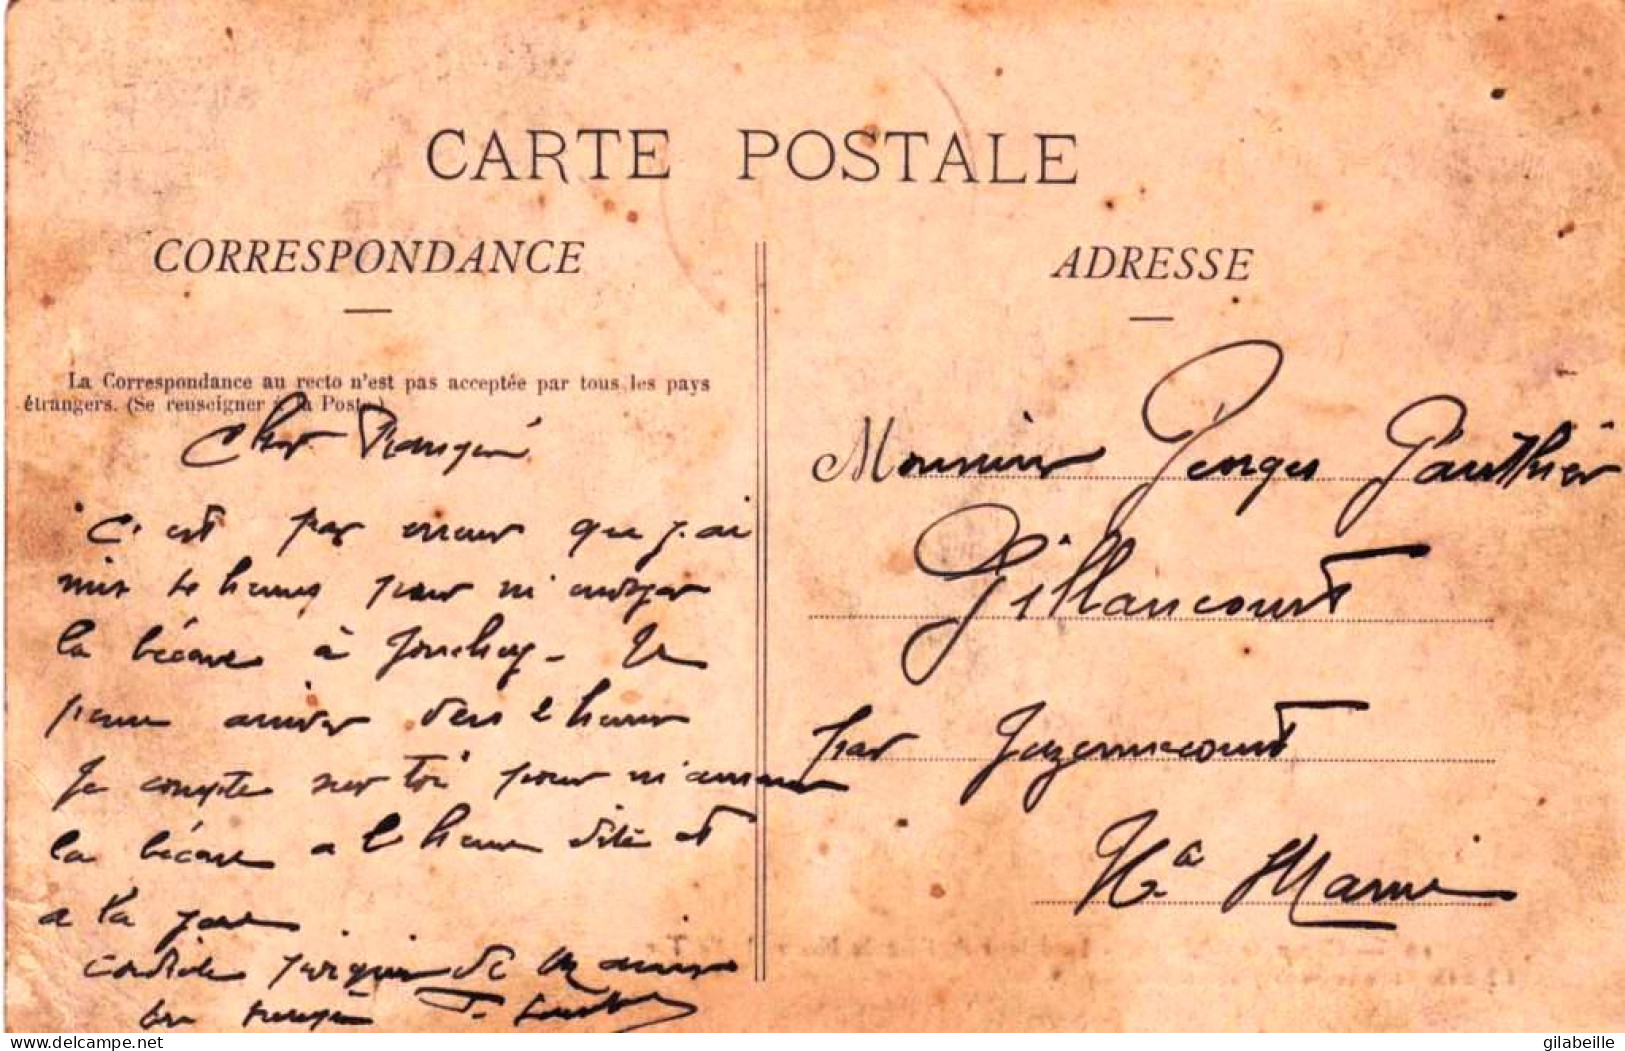 CARTE POSTALE
CORRESPONDANCE
La Correspondance au recto n'est pas acceptée par tous les pays
étrangers. (Se renseigner à la Poste.)
Cher
C'est par erreur que j'ai
mis heures pour m'
la bécane à Jonchery - Je
pense arriver vers heures
Je compte sur toi pour m'amener
la bécane a l'heure dite et
a la gare
cordiale de
ADRESSE
Monsieur Georges Gauthier
Gillancourt
par Juzennecourt
Hte Marne
delcampe.net
gilabeille